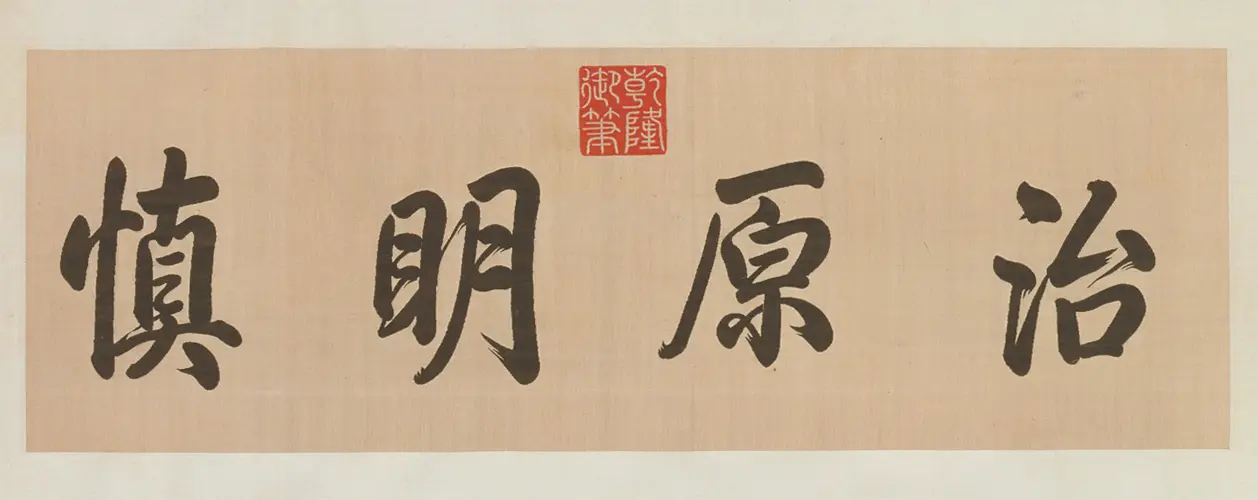 治原明慎
乾隆
御筆